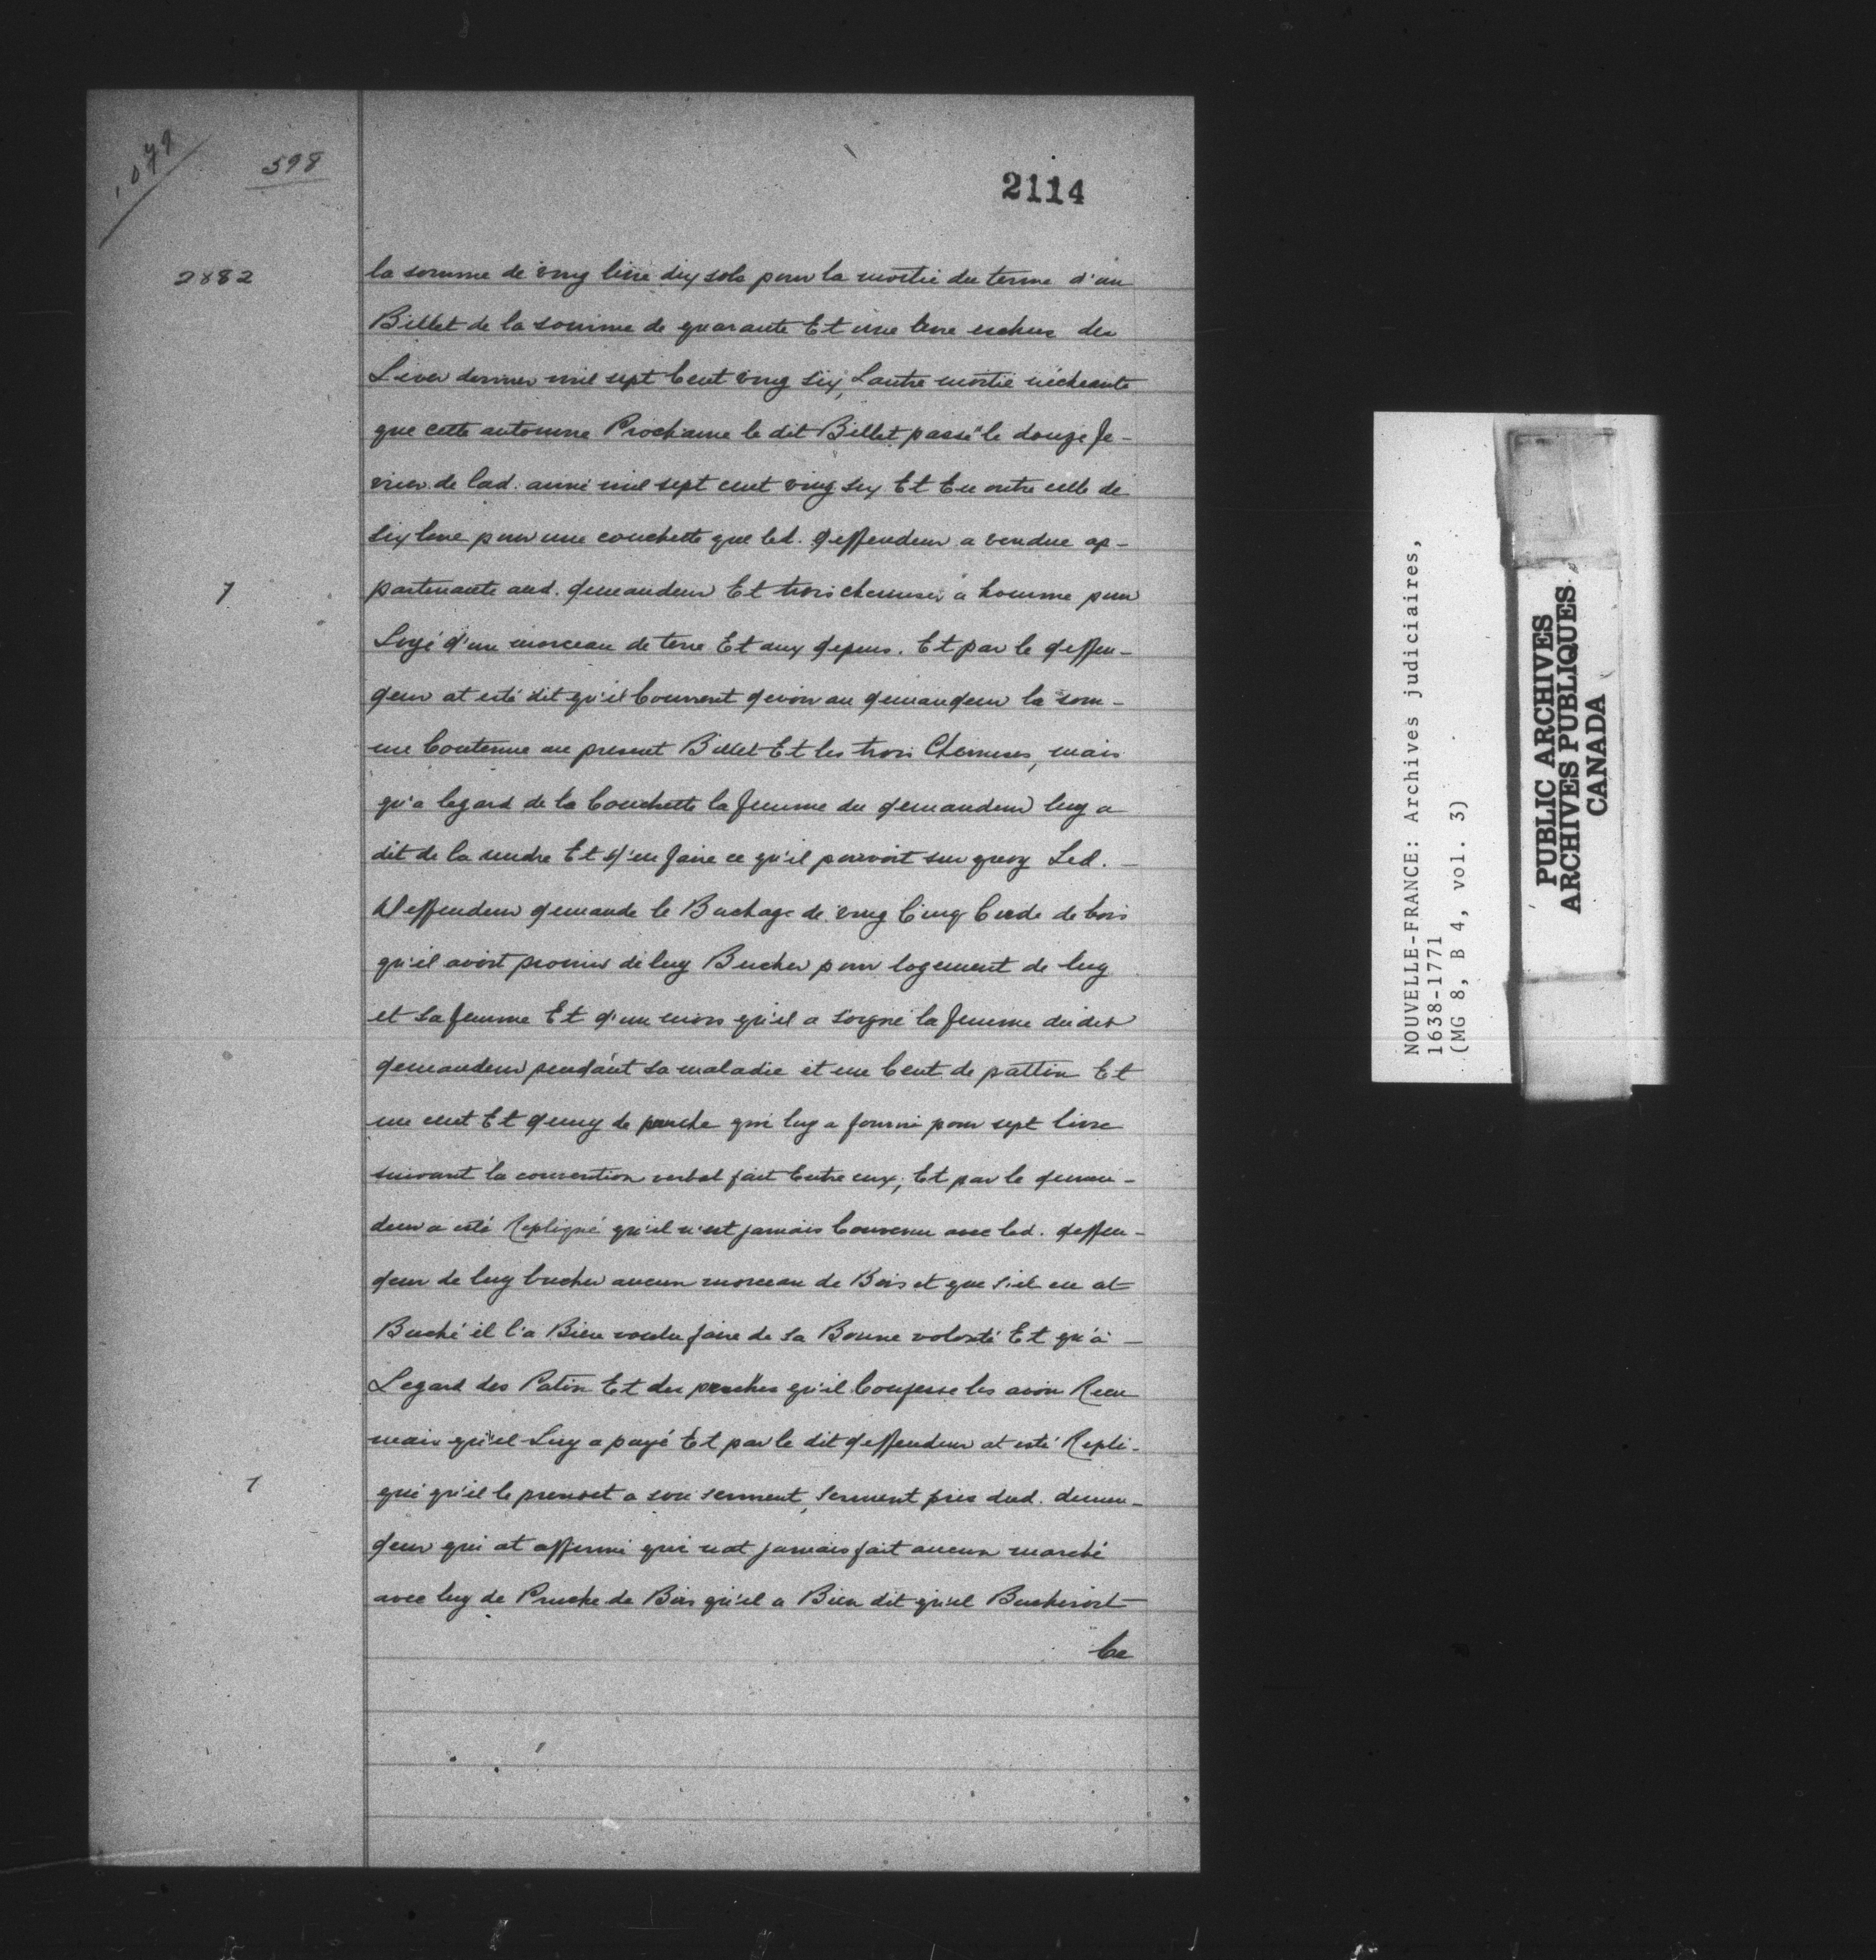 1079
598
2114
2882
la somme de vingt livre dix sols pour la moitié du terme d'un
Billet de la somme de quarante Et une livre eschue du
L'iver dernier mil sept Cent vingt six, Lautre moitié n'écheante
que cette automne Prochaine le dit Billet passé le douze fe-
vrier de lad. anné mil sept cent vingt six Et En outre celle de
six livre pour une couchette que led. deffendeur a vendue ap-
partenante aud. demandeur Et trois chemises à homme pour
Loyé d'un morceau de terre Et aux depens. Et par le deffen-
deur at esté dit qu'il Convient devoir au demandeur la som-
me Contenue au present Billet Et les trois Chemises, mais
qu'a legard de la Couchette la femme du demandeur luy a
dit de la vendre Et d'en faire ce qu'il pouvoit sur quoy Led.
Deffendeur demande le Buchage de vingt Cinq Corde de bois
qu'il avoit promis de luy Bucher pour logement de luy
et sa femme Et d'un mois qu'il a soigné la femme dudit
demandeur pendant sa maladie et un Cent de pattin Et
un cent Et demy de pruche qui luy a fourni pour sept livre
suivant la convention verbal fait Entre eux; Et par le deman-
deur a esté Repliqué qu'il n'est jamais Convenu avec led. deffen-
deur de luy bucher aucun morceau de Bois et que s'il en at
Buché il l'a Bien voulu faire de sa Bonne volonté Et qu'à
Legard des Patin Et des pruches qu'il Confesse les avoir Receu
mais qu'il Luy a payé Et par le dit deffendeur at esté Repli-
qué qu'il le prenoet a son serment, serment pris dud. deman-
deur qui at affirmé qui nat jamais fait aucun marché
avec luy de Pruche de Bois qu'il a Bien dit qu'il Bucheroit
Ce
NOUVELLE-FRANCE: Archives judiciaires,
1638-1771
(MG 8, B 4, vol. 3)
PUBLIC ARCHIVES
ARCHIVES PUBLIQUES
CANADA